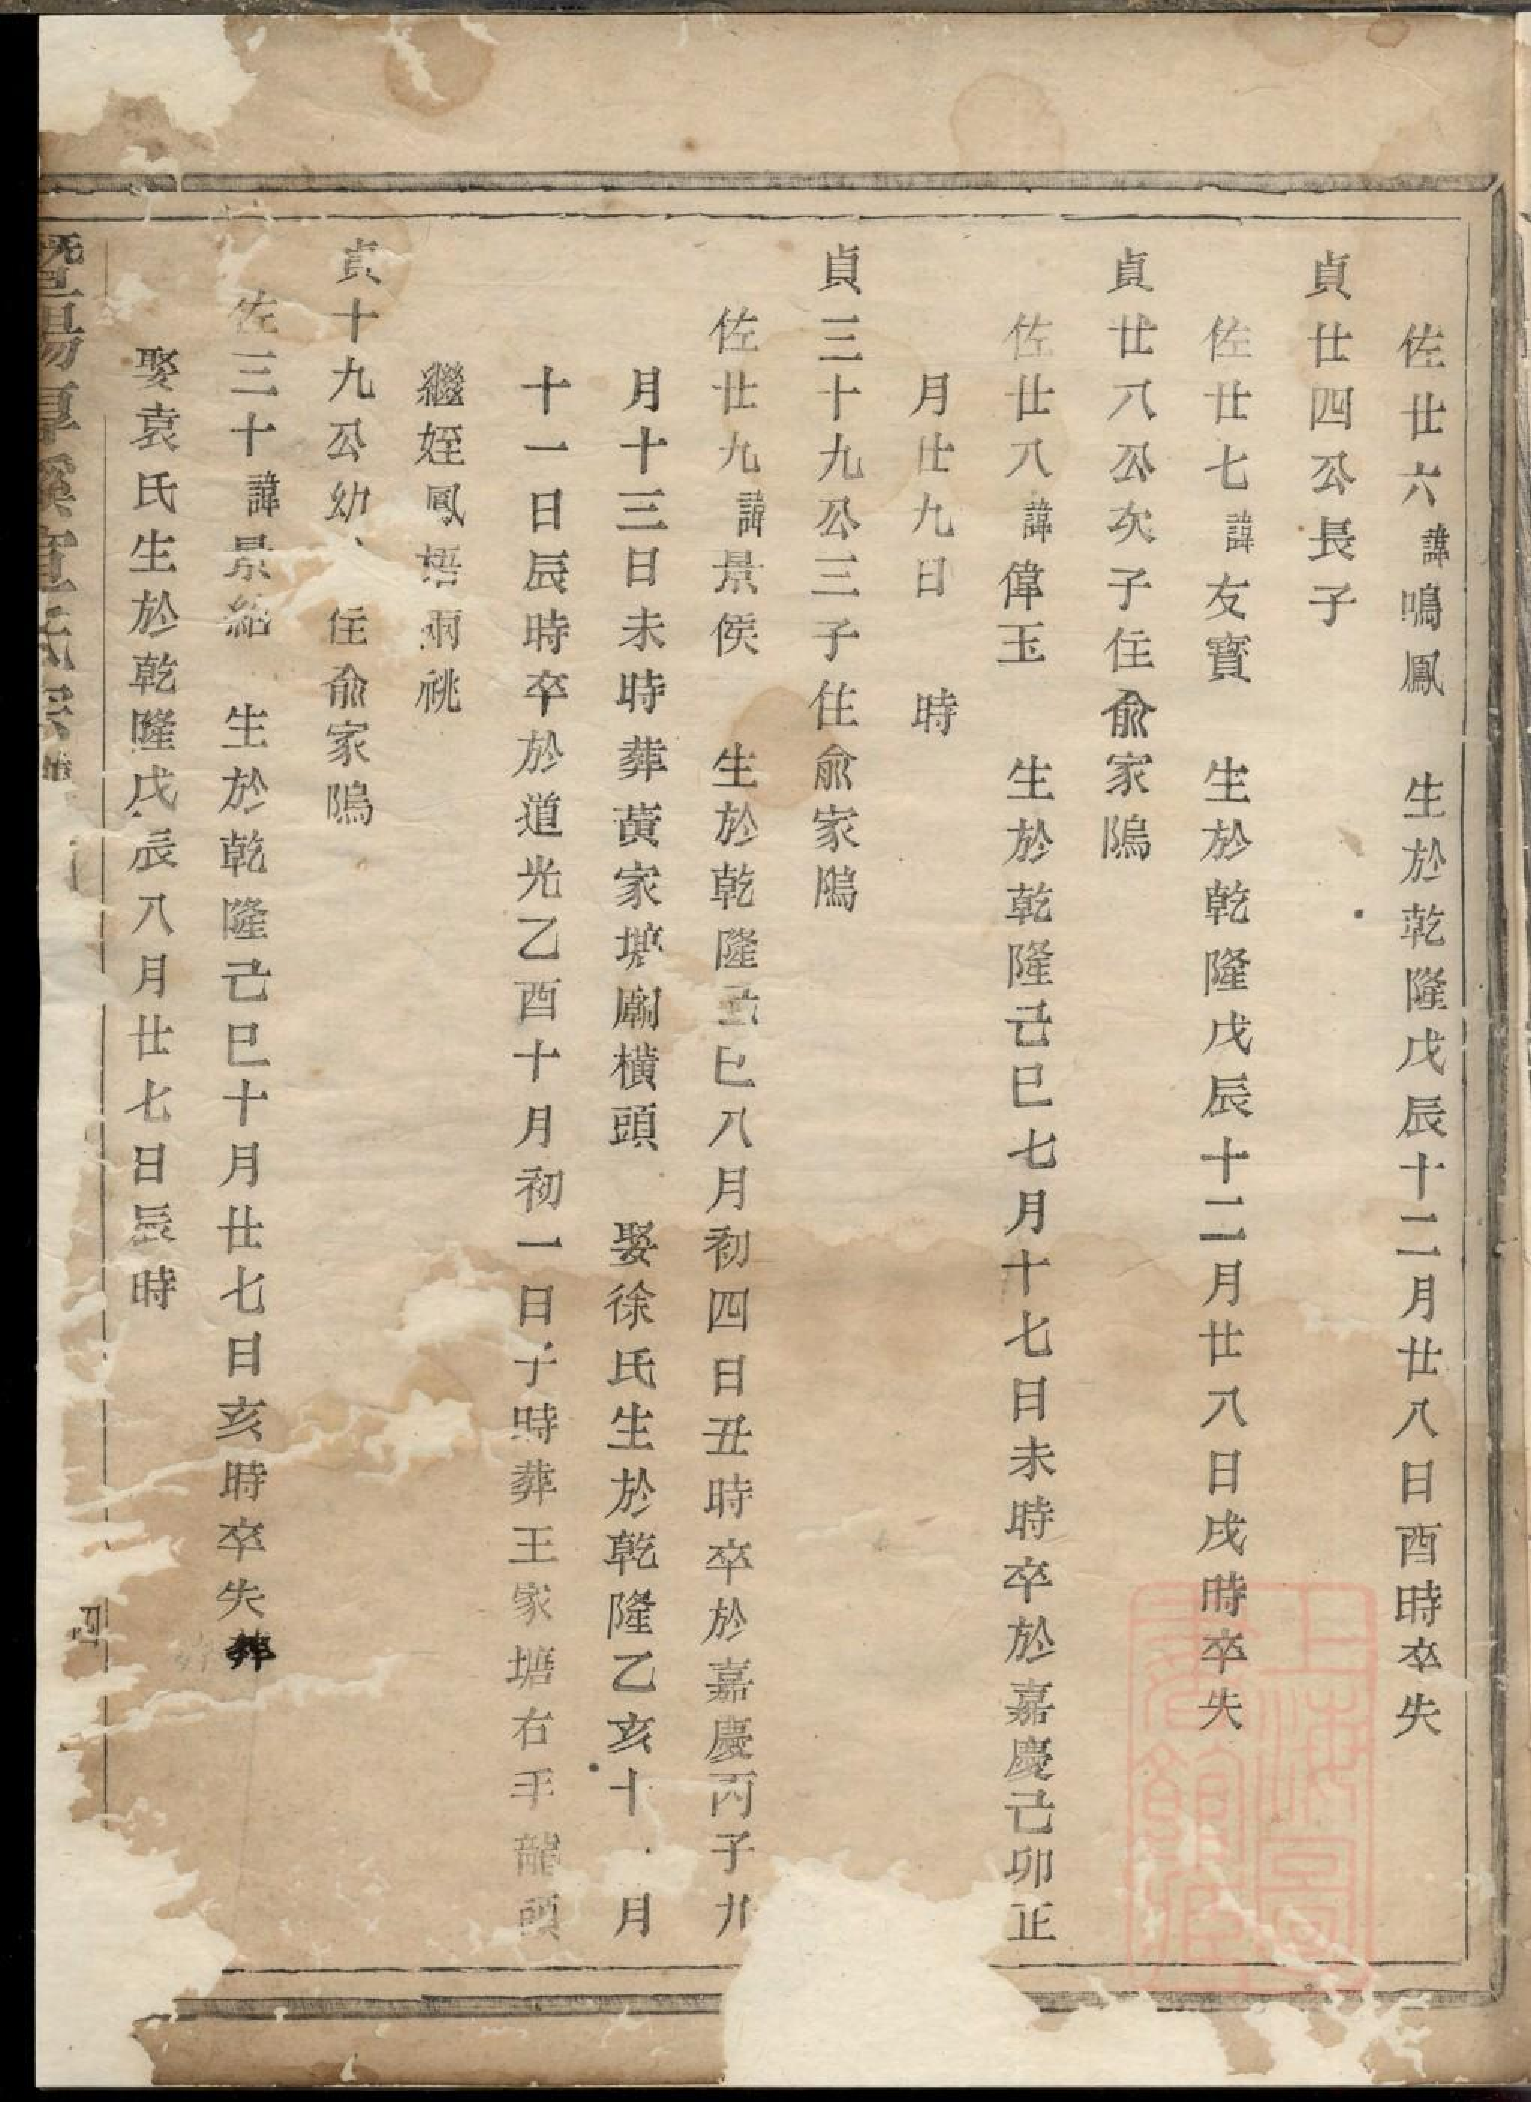 佐廿六諱鳴鳳 生於乾隆戊辰十二月廿八日酉時卒失
貞廿四公長子
佐廿七諱友寳 生於乾隆戊辰十二月廿八日戌時卒失
貞廿八公次子住俞家隖
佐廿八諱偉玉 生於乾隆己巳七月十七日未時卒於嘉慶己卯正
月廿九日 時
貞三十九公三子住俞家隖
佐廿九諱景侯 生於乾隆巳八月初四日丑時卒於嘉慶丙子九
月十三日未時葬黄家塘廟横頭 娶徐氏生於乾隆乙亥十一月
十一日辰時卒於道光乙酉十月初一日子時葬王家塘右手龍頭
繼姪鳳梧兩祧
貞十九公幼 住俞家隖
佐三十諱景 生於乾隆己巳十月廿七日亥時卒失葬
娶袁氏生於乾隆戊辰八月廿七日辰時
暨陽宣氏宗譜
四
上海圖書館藏